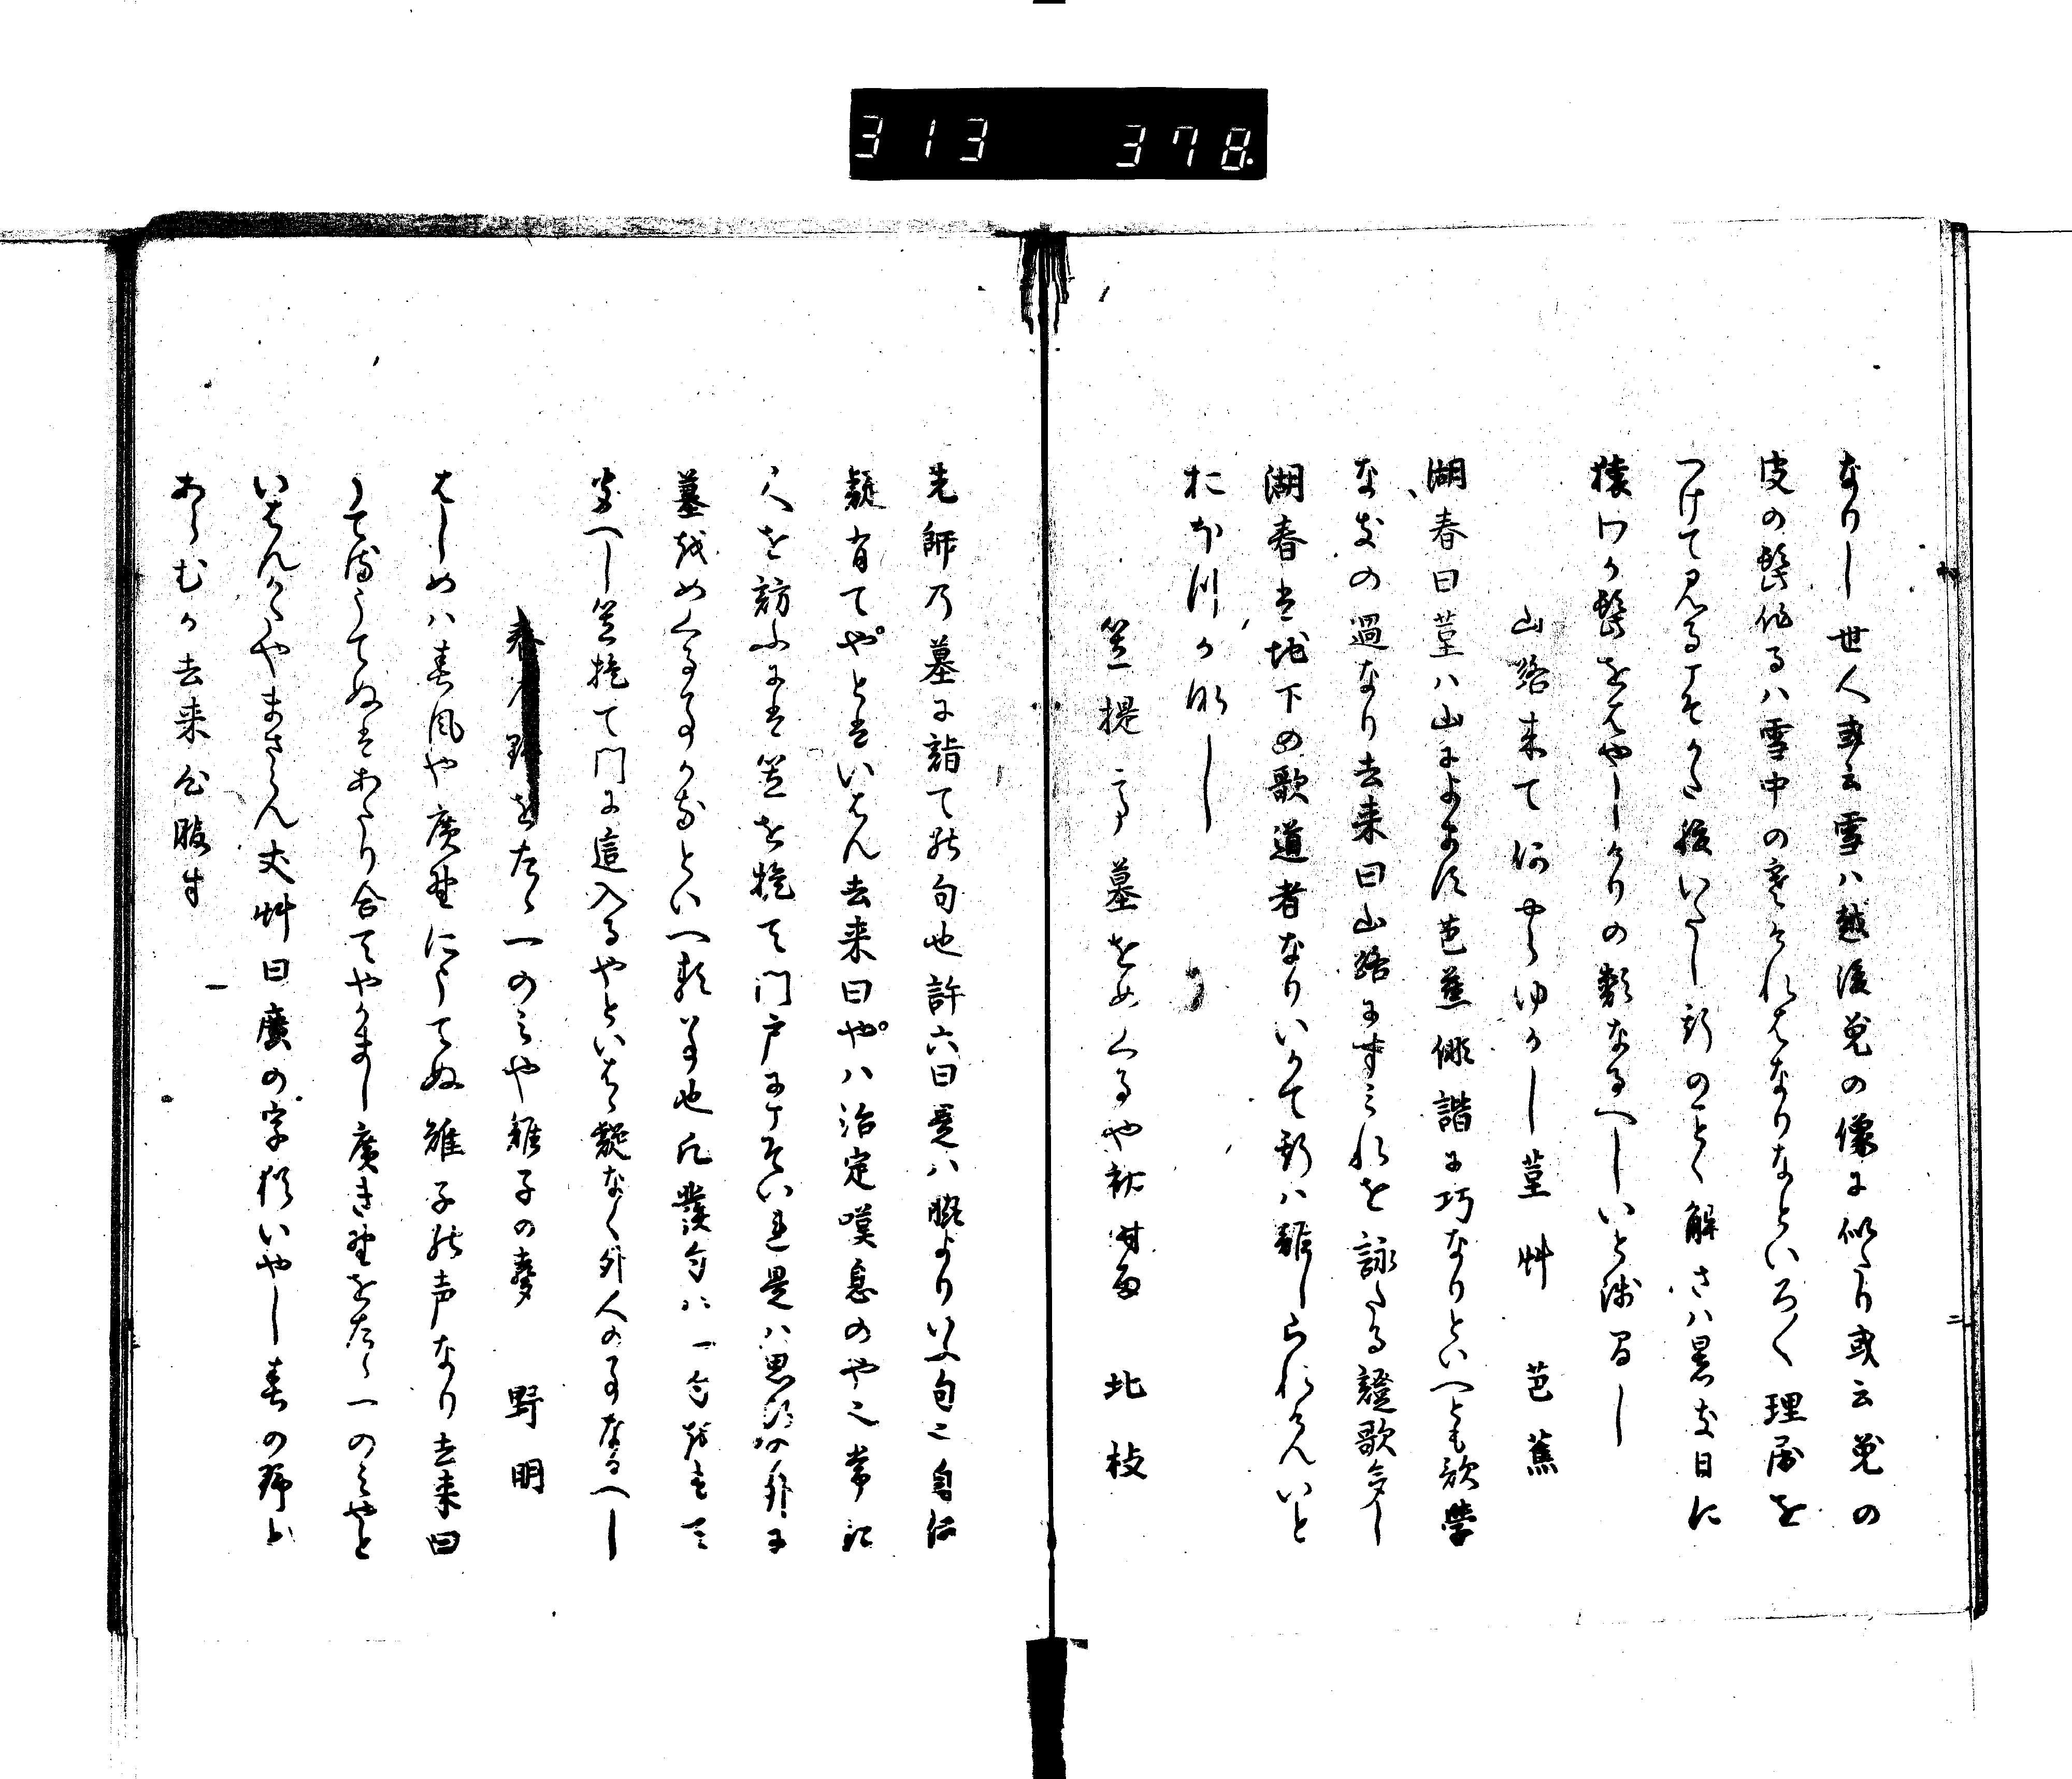 313 378.
なりし世人或云雪ハ越後兎の像に似たり或云兎の
皮の髭作るハ雪中の寒けれはなりなといろ〱理屈を
つけて見るこそうた後いたし斯のことく解さハ暑き日に
猿の髭をはやしけりの類なるへしいと浅まし
山路来て何やらゆかし菫艸 芭蕉
湖春曰菫ハ山によます芭蕉俳諧に巧なりといへとも歌学
なきの過なり去来曰山路にすみれを詠たる證歌多し
湖春は地下の歌道者なりいかて斯ハ難しられけんいと
おほつかなし
笠提て墓をめくるや初時雨 北枝
先師の墓に詣ての句也許六曰是ハ脇よりいふ句ニ自仁
疑有てやとはいはん去来曰やハ治定嘆息のや也常に
人を訪ふには笠を提て門戸にこそいれ是ハ思ひの外に
墓をめくる事かなといへる事也凡発句ハ一句を以て
安へし笠提て門に這入るやといはゝ疑なく外人の事なるへし
春の野をたゝ一のみや雉子の聲 野明
はしめハ春風や廣野にうてぬ雉子の声なり去来曰
うてるうてぬはあたり合てやかまし廣き野をたゝ一のみやと
いはんかやまさらん丈艸曰廣の字猶いやし春の野と
あらむか去来心服す